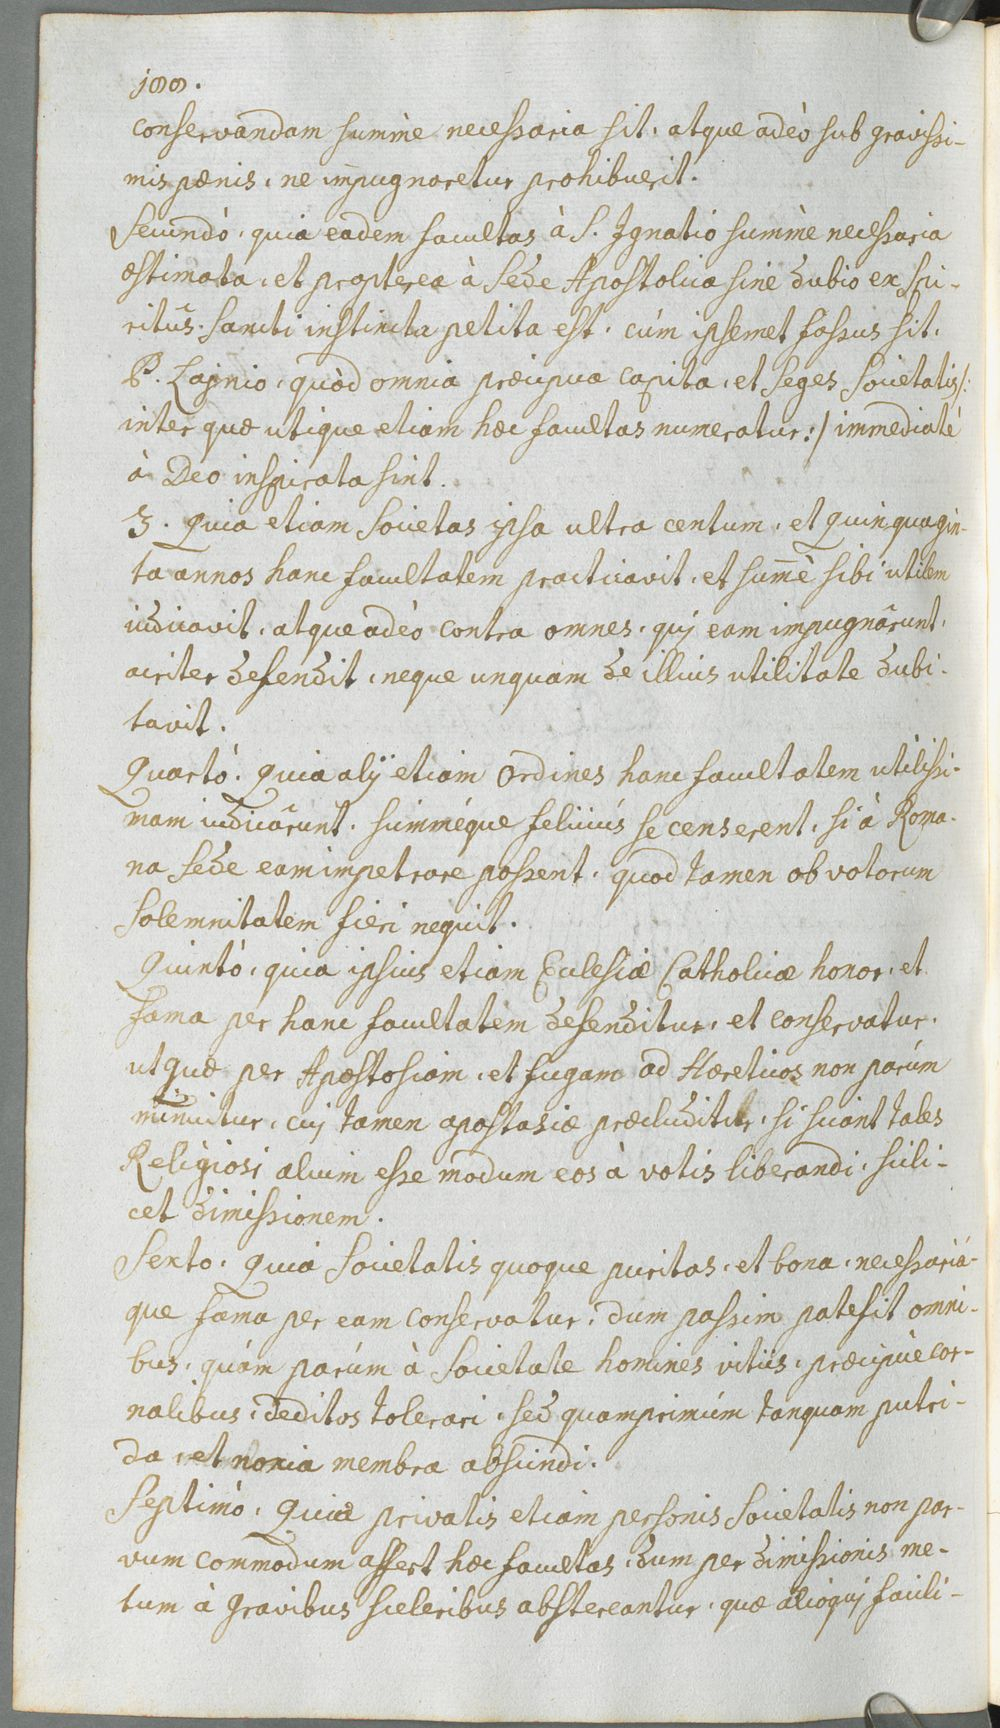 188.
conservandam summè necessaria sit, atque adeò sub gravissi-
mis pænis, ne impugnaretur prohibuerit.
Secundò, quia eadem facultas à S. Ignatio summè necessaria
æstimata, et propterea à Sede Apostolica sine dubio ex Spi-
ritûs Sancti instinctu petita est, cúm ipsemet fassus sit,
P. Laynio, quòd omnia præcipua capita, et Leges Societatis /:
inter quæ utique etiam hæc facultas numeratur :/ immediatè
à Deo inspirata sint.
3. Quia etiam Societas ipsa ultra centum, et quinquagin-
ta annos hanc facultatem practicavit, et sum̄è sibi utilem
iudicavit, atque adeò contra omnes, qui eam impugnârunt,
acriter defendit, neque unquam de illius utilitate dubi-
tavit.
Quartò. Quia alÿ etiam Ordines hanc facultatem utilissi-
mam iudicârunt, summéque feliciús se censerent, si à Roma-
na Sede eam impetrare possent, quod tamen ob votorum
Solemnitatem fieri nequit.
Quintò, quia ipsius etiam Ecclesiæ Catholicæ honor, et
fama per hanc facultatem defenditur, et conservatur,
utquæ per Apostosiam, et fugam ad Hæreticos non parúm
minuitur, cui tamen apostasiæ præcluditur, si sciant tales
Religiosi alium esse modum eos à votis liberandi, scili-
cet dimissionem.
Sexto. Quia Societatis quoque puritas, et bona, necessariá-
que fæma per eam conservatur, dum passim patefit omni-
bus, quám parúm à Societate homines vitiis, præcipuè cor-
nalibus, deditos tolerari, sed quamprimúm tanquam putri-
da, et noxia membra abscindi.
Septimò. Quia privatis etiam personis Societatis non par-
vum commodum affert hæc facultas, dum per dimissionis me-
tum à gravibus sceleribus abstereantur, quæ alioqui facili-